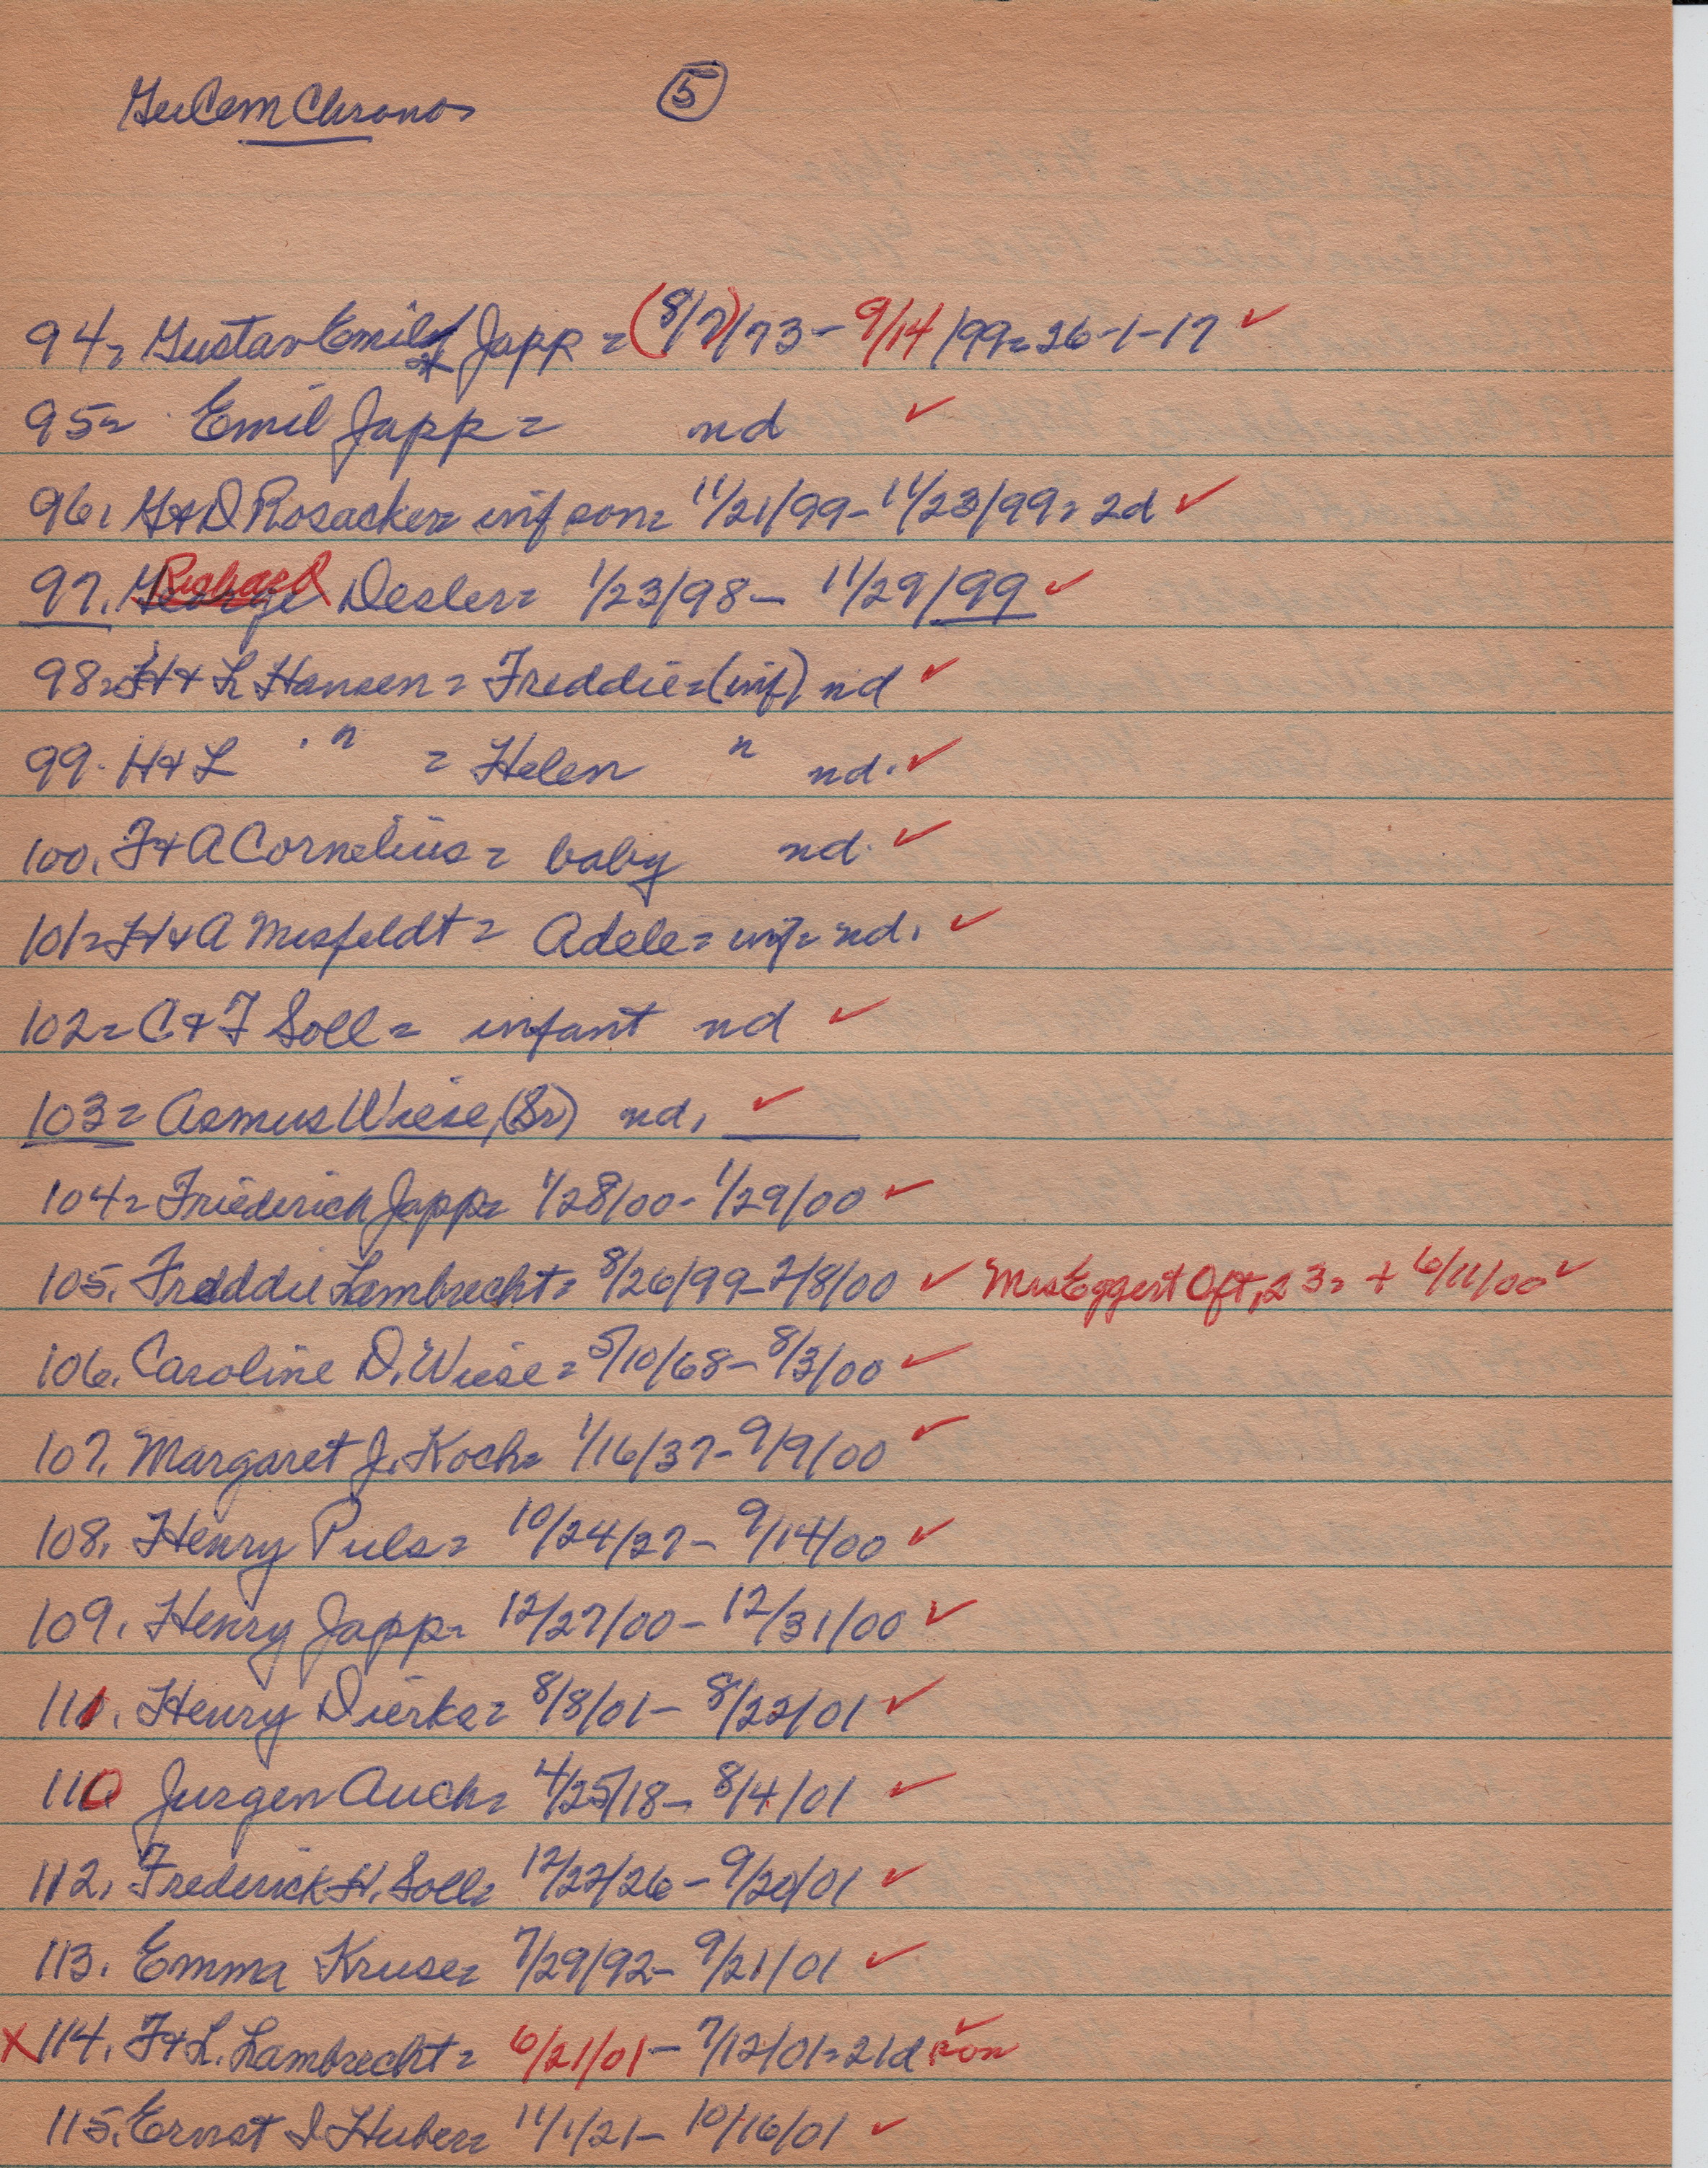 GerCem Chronos ⑤
94= Gustav Emil Japp = (8/7)/73 - 9/14/99=26-1-17 ✓
95= Emil Japp = nd ✓
96. G+D Rosacker= inf son= 11/21/99-11/23/99= 2d ✓
97. Richard Desler= 1/23/98- 11/29/99 ✓
98= H+L Hansen = Freddie=(inf) nd ✓
99. H+L " = Helen " nd. ✓
100. F+A Cornelius = baby nd. ✓
101= H+A Misfeldt = Adele= inf= nd. ✓
102= C+F Soll = infant nd ✓
103= Asmus Wiese, (Sr) nd. ✓
104= Friederich Japp= 1/28/00- 1/29/00 ✓
105. Freddie Lambrecht= 8/26/99-2/8/00 ✓ Mrs Eggert Oft, 23= + 6/11/00 ✓
106. Caroline D. Wiese= 5/10/68- 8/3/00 ✓
107. Margaret J. Koch= 1/16/37- 9/9/00 ✓
108. Henry Puls= 10/24/27- 9/14/00 ✓
109. Henry Japp= 12/27/00- 12/31/00 ✓
111. Henry Dierks= 8/8/01- 8/22/01 ✓
110 Jurgen Auch= 4/25/18- 8/4/01 ✓
112. Frederick H. Soll= 12/22/26- 9/20/01 ✓
113. Emma Kruse= 7/29/92- 9/21/01 ✓
X 114. F+L. Lambrecht= 6/21/01- 7/12/01=21d son ✓
115. Ernst I Huber= 11/1/21- 10/16/01 ✓